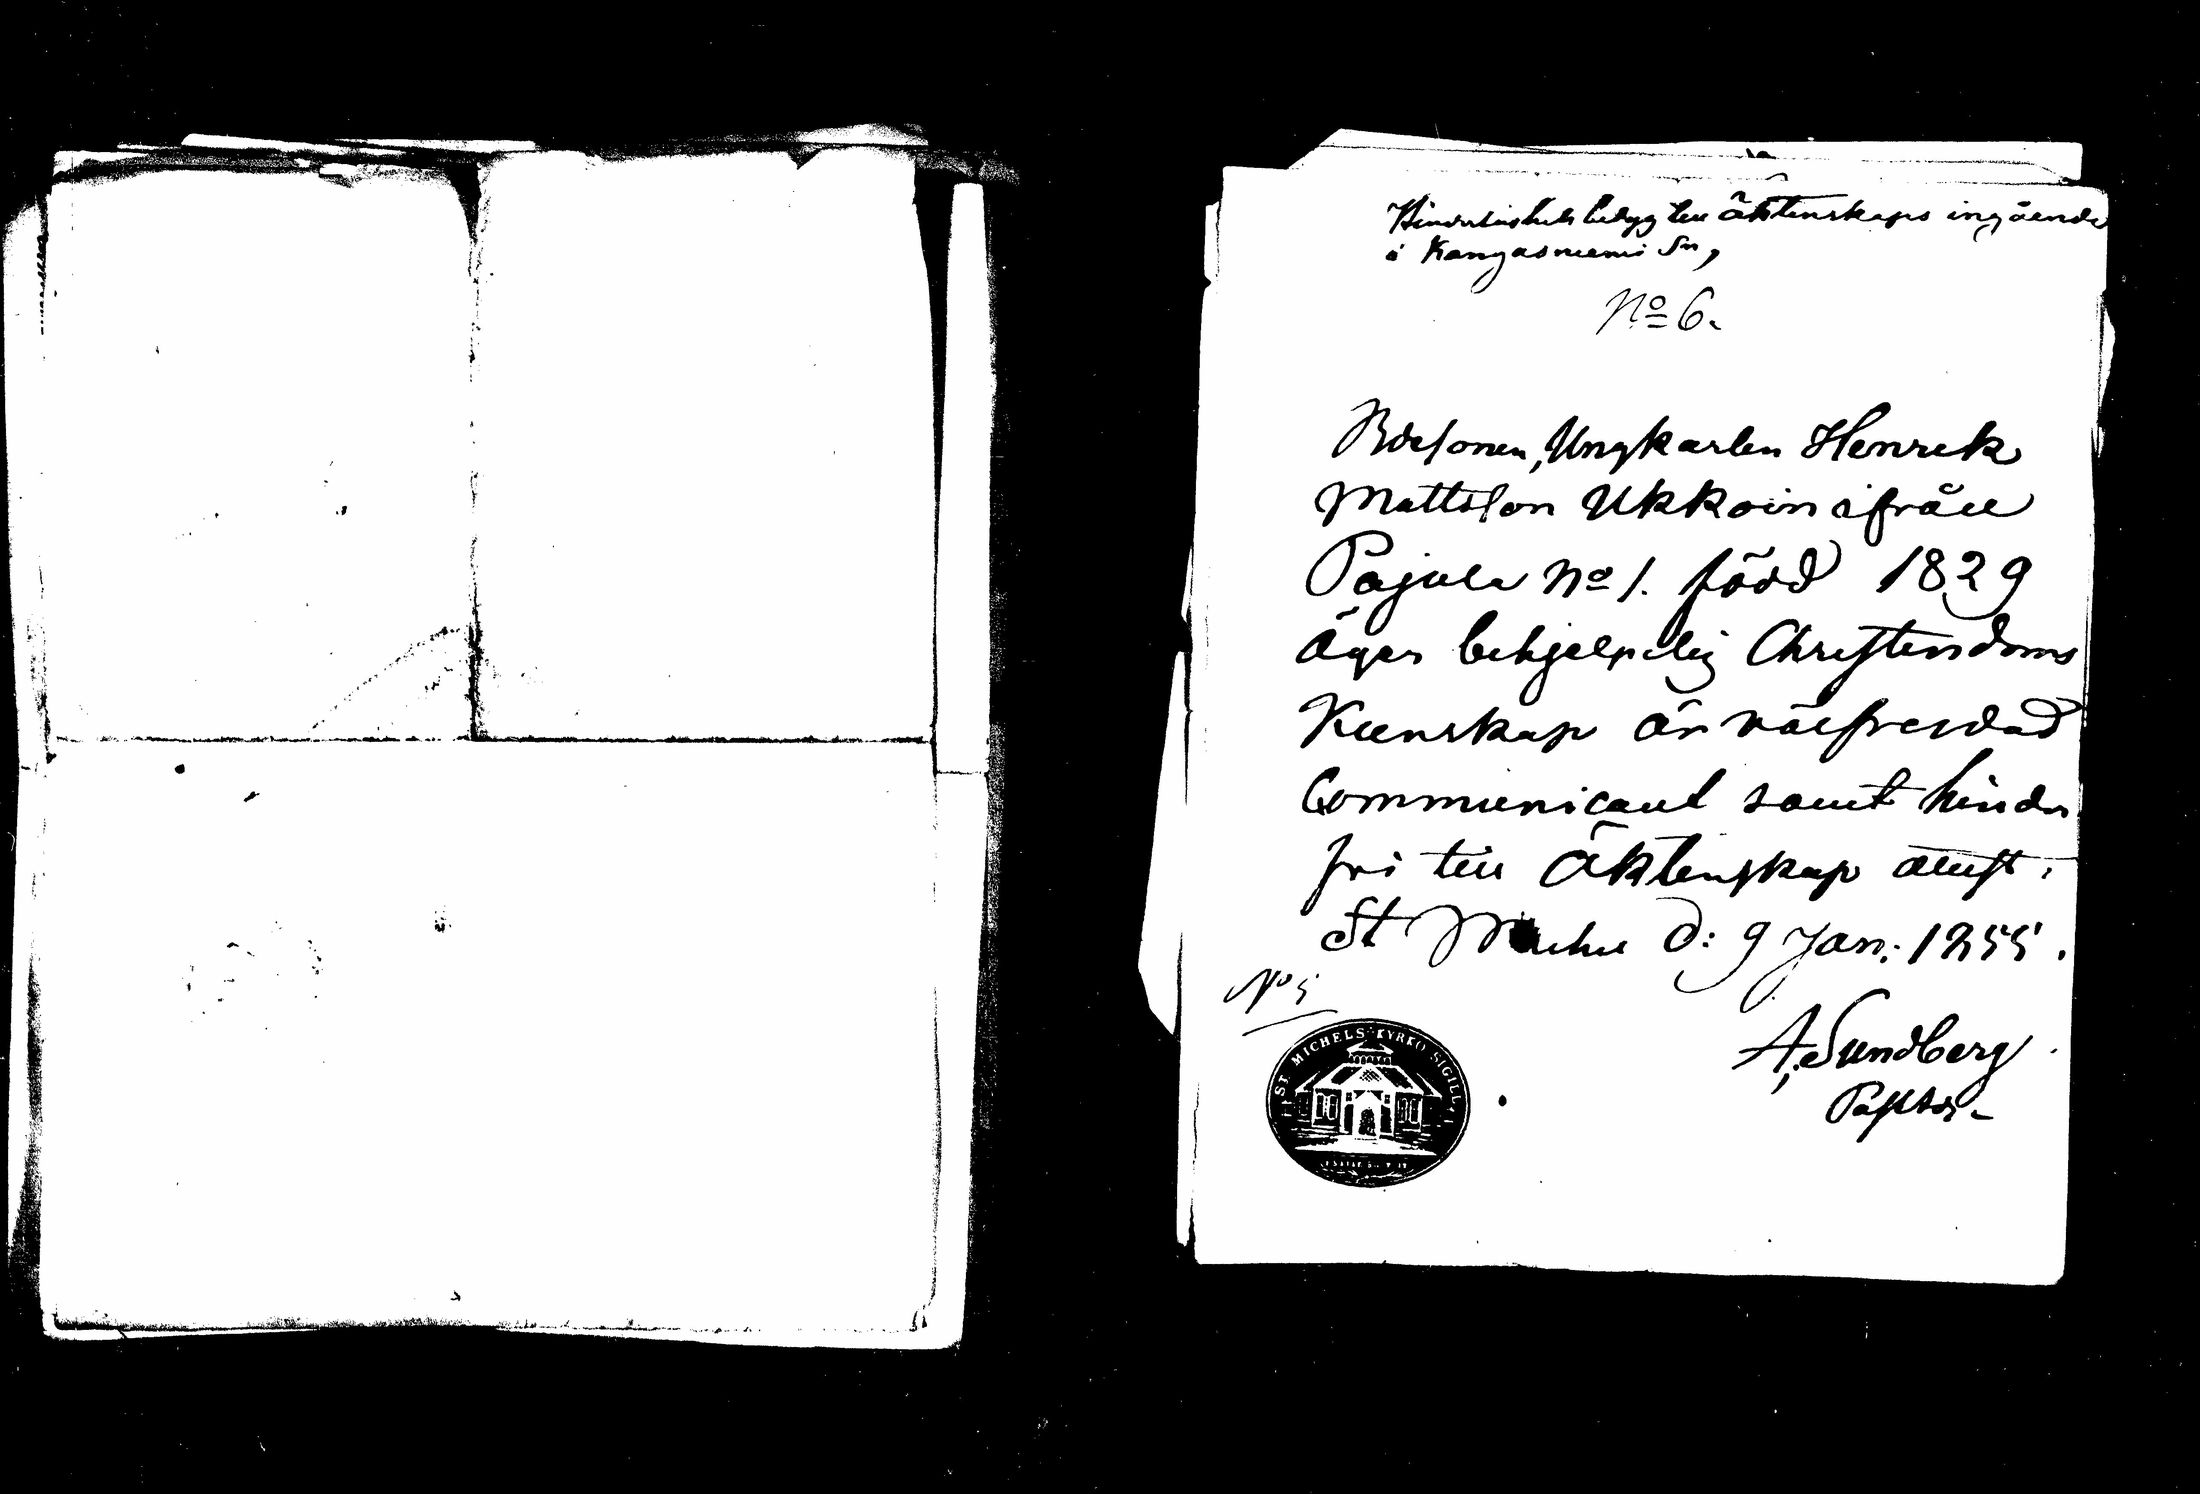 Hinderslöshets betyg till Äktenskaps ingående
i Kangasniemi Sn,
No 6.
Bdesonen, Ungkarlen Henrik
Mattsson Ukkoin ifrån
Pajula No 1. född 1829
Äger behjelpelig Christendoms
Kunskap är välfrejdad
Communicant samt hinder
fri till Äktenskap attest.
St Michel d: 9 Jan: 1855.
No 5
A. Sundberg
Pastor
ST. MICHELS KYRKO SIGILL